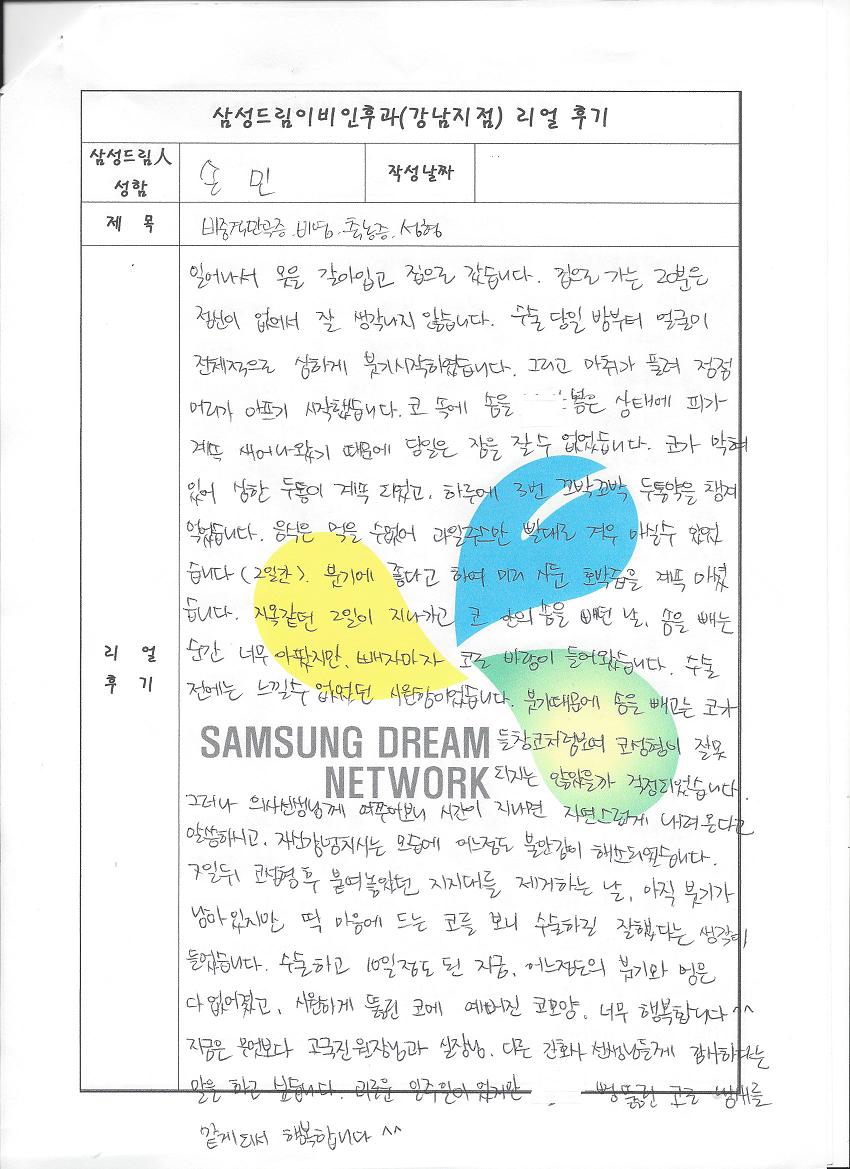 삼성드림이비인후과(강남지점) 리얼 후기
삼성드림人 성함
손 민
작성날짜
제 목
비중격만곡증. 비염. 축농증. 성형
리 얼 후 기
일어나서 옷을 갈아입고 집으로 갔습니다. 집으로 가는 20분은
정신이 없어서 잘 생각나지 않습니다. 수술 당일 밤부터 얼굴이
전체적으로 심하게 붓기시작하였습니다. 그리고 마취가 풀려 점점
머리가 아프기 시작했습니다. 코 속에 솜을 상태에 피가
계속 새어나왔기 때문에 당일은 잠을 잘 수 없었습니다. 코가 막혀
있어 심한 두통이 계속 되었고, 하루에 3번 꼬박꼬박 두통약을 챙겨
먹었습니다. 음식은 먹을 수없어 과일주스만 빨대로 겨우 마실수 있었
습니다 (2일간). 붓기에 좋다고 하여 미리 사둔 호박즙을 계속 마셨
습니다. 지옥같던 2일이 지나가고 코 안의 솜을 빼던 날, 솜을 빼는
순간 너무 아팠지만, 빼자마자 코로 바람이 들어왔습니다. 수술
전에는 느낄수 없었던 시원함이었습니다. 붓기때문에 솜을 빼고는 코가
들창코처럼보여 코성형이 잘못
SAMSUNG DREAM
되지는 않았을까 걱정되었습니다.
NETWORK
그러나 의사선생님께 여쭈어보니 시간이 지나면 자연스럽게 내려온다고
말씀하시고, 자신감넘치시는 모습에 어느정도 불안감이 해소되었습니다.
7일뒤 코성형 후 붙여놓았던 지지대를 제거하는 날, 아직 붓기가
남아있지만 딱 마음에 드는 코를 보니 수술하길 잘했다는 생각이
들었습니다. 수술하고 10일정도 된 지금, 어느정도의 붓기와 멍은
다 없어졌고, 시원하게 뚫린 코에 예뻐진 코모양, 너무 행복합니다^^
지금은 무엇보다 고국진원장님과 실장님, 다른 간호사 선생님들께 감사하다는
말을 하고 싶습니다. 괴로운 일주일이었지만 뻥뚫린 코를
갖게되서 행복합니다 ^^